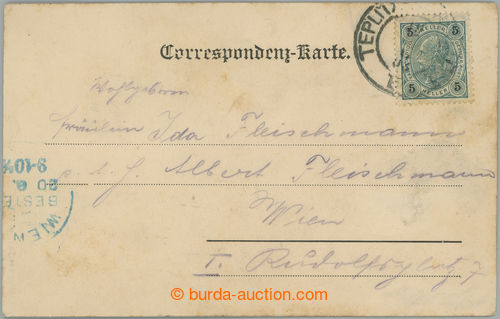 Correspondenz-Karte.
TEPLITZ
5 5
5 HELLER 5
Wohlgeboren
Fräulein Ida Fleischmann
p. A. H. Albert Fleischmann
Wien
I. Rudolfsplatz 7
WIEN
BESTE
20 6.
9-10½
© burda-auction.com